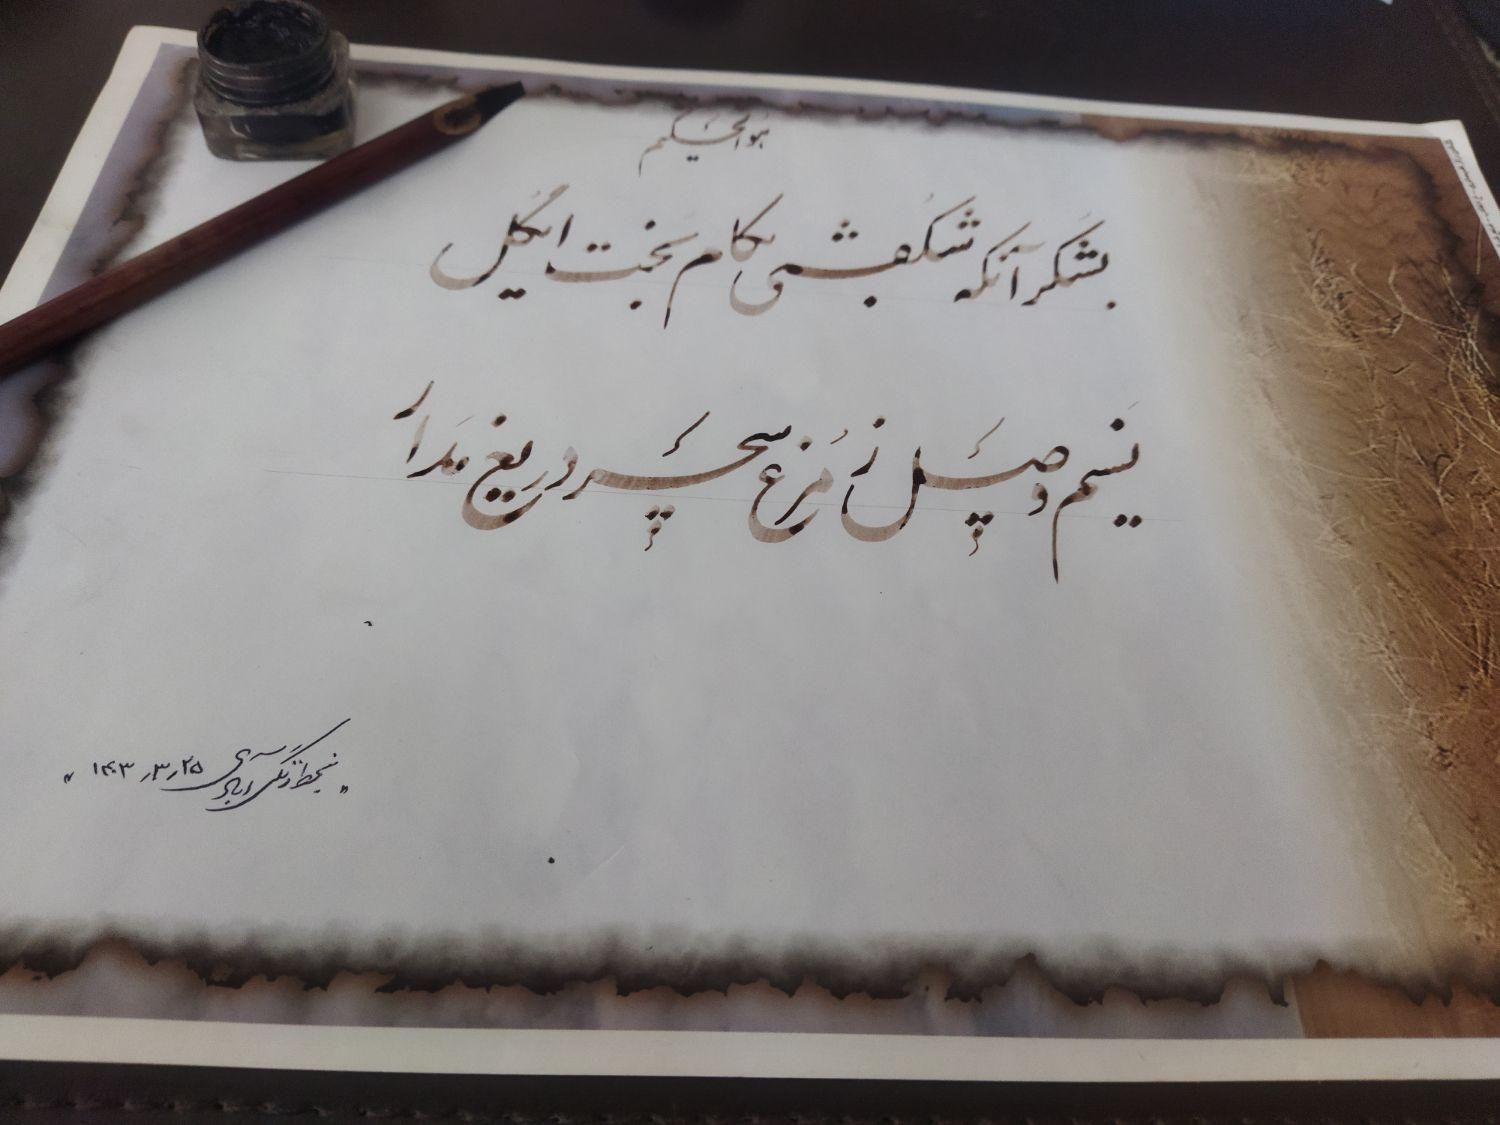 هوالحکیم
بشکر آنکه شکفتی بکام بخت ای گل
نسیم وصل ز مرغ سحر دریغ مدار
۱۴۰۳٫۳٫۲۵